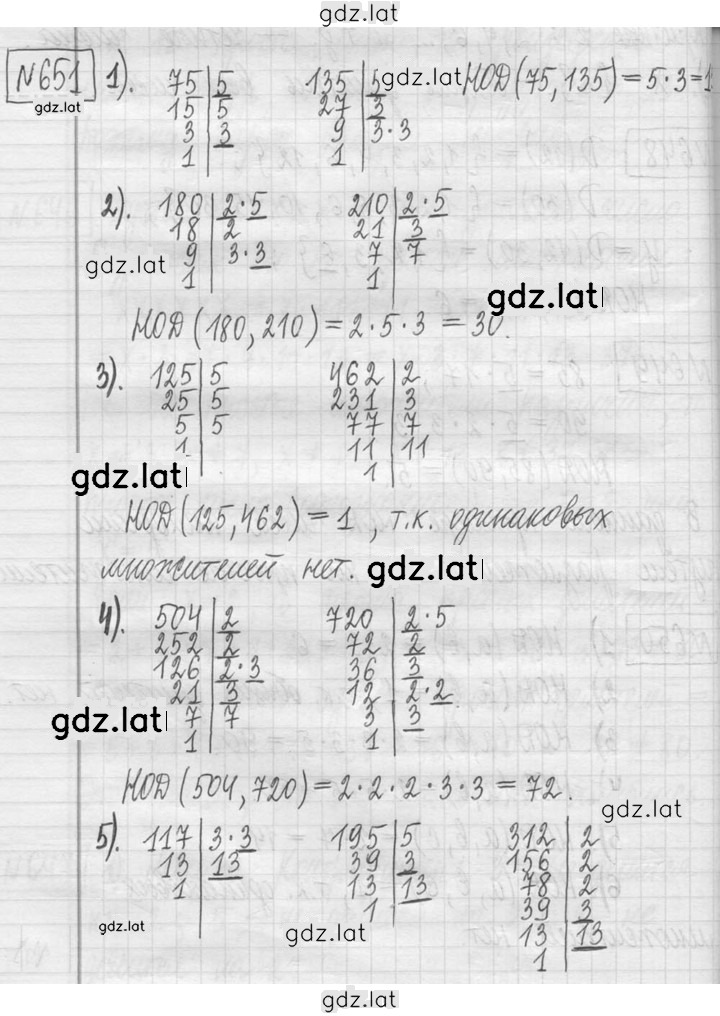 gdz.lat
№651 1). 75 | 5 135 | 5 gdz.lat НОД(75,135) = 5·3=1
gdz.lat 15 | 5 27 | 3
3 | 3 9 | 3·3
1 | 1 |
2). 180 | 2·5 210 | 2·5
18 | 2 21 | 3
gdz.lat 9 | 3·3 7 | 7
1 | 1 |
gdz.lat
НОД(180,210) = 2·5·3 = 30.
3). 125 | 5 462 | 2
25 | 5 231 | 3
5 | 5 77 | 7
1 | 11 | 11
gdz.lat 1 |
НОД(125,462) = 1, т.к. одинаковых
множителей нет. gdz.lat
4). 504 | 2 720 | 2·5
252 | 2 72 | 2
126 | 2·3 36 | 3
21 | 3 12 | 2·2
gdz.lat 7 | 7 3 | 3
1 | 1 |
НОД(504,720) = 2·2·2·3·3 = 72.
gdz.lat
5). 117 | 3·3 195 | 5 312 | 2
13 | 13 39 | 3 156 | 2
1 | 13 | 13 78 | 2
1 | 39 | 3
gdz.lat gdz.lat 13 | 13
1 |
gdz.lat